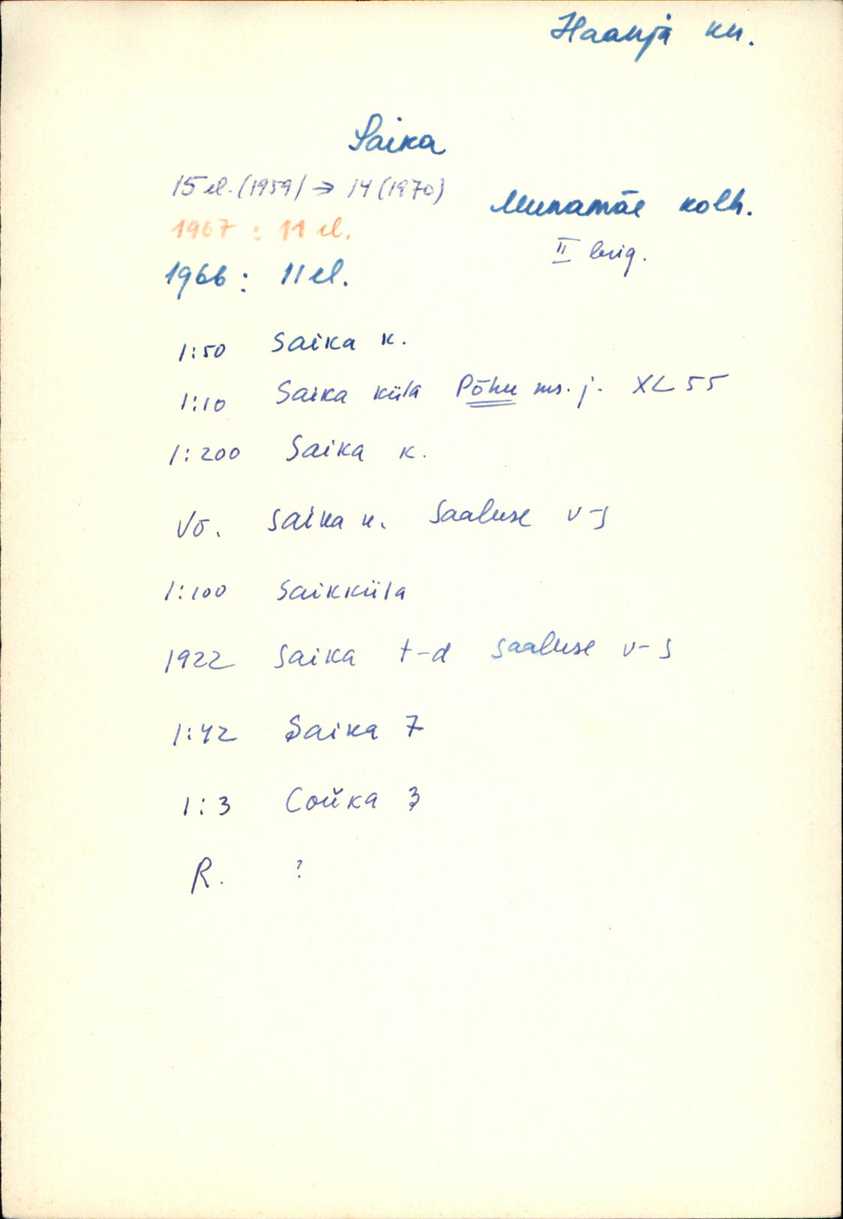 Haanja kn.
Saika
15 el. (1959) → 14 (1970)
Munamäe kolh.
1967 : 11 el.
II brig.
1966 : 11 el.
1:50 Saika k.
1:10 Saika küla Põhu ms. j. XL 55
1:200 Saika k.
Võ. Saika k. Saaluse v-s
1:100 Saikküla
1922 Saika t-d Saaluse v-s
1:42 Saika 7
1:3 Сойка 3
R. ?